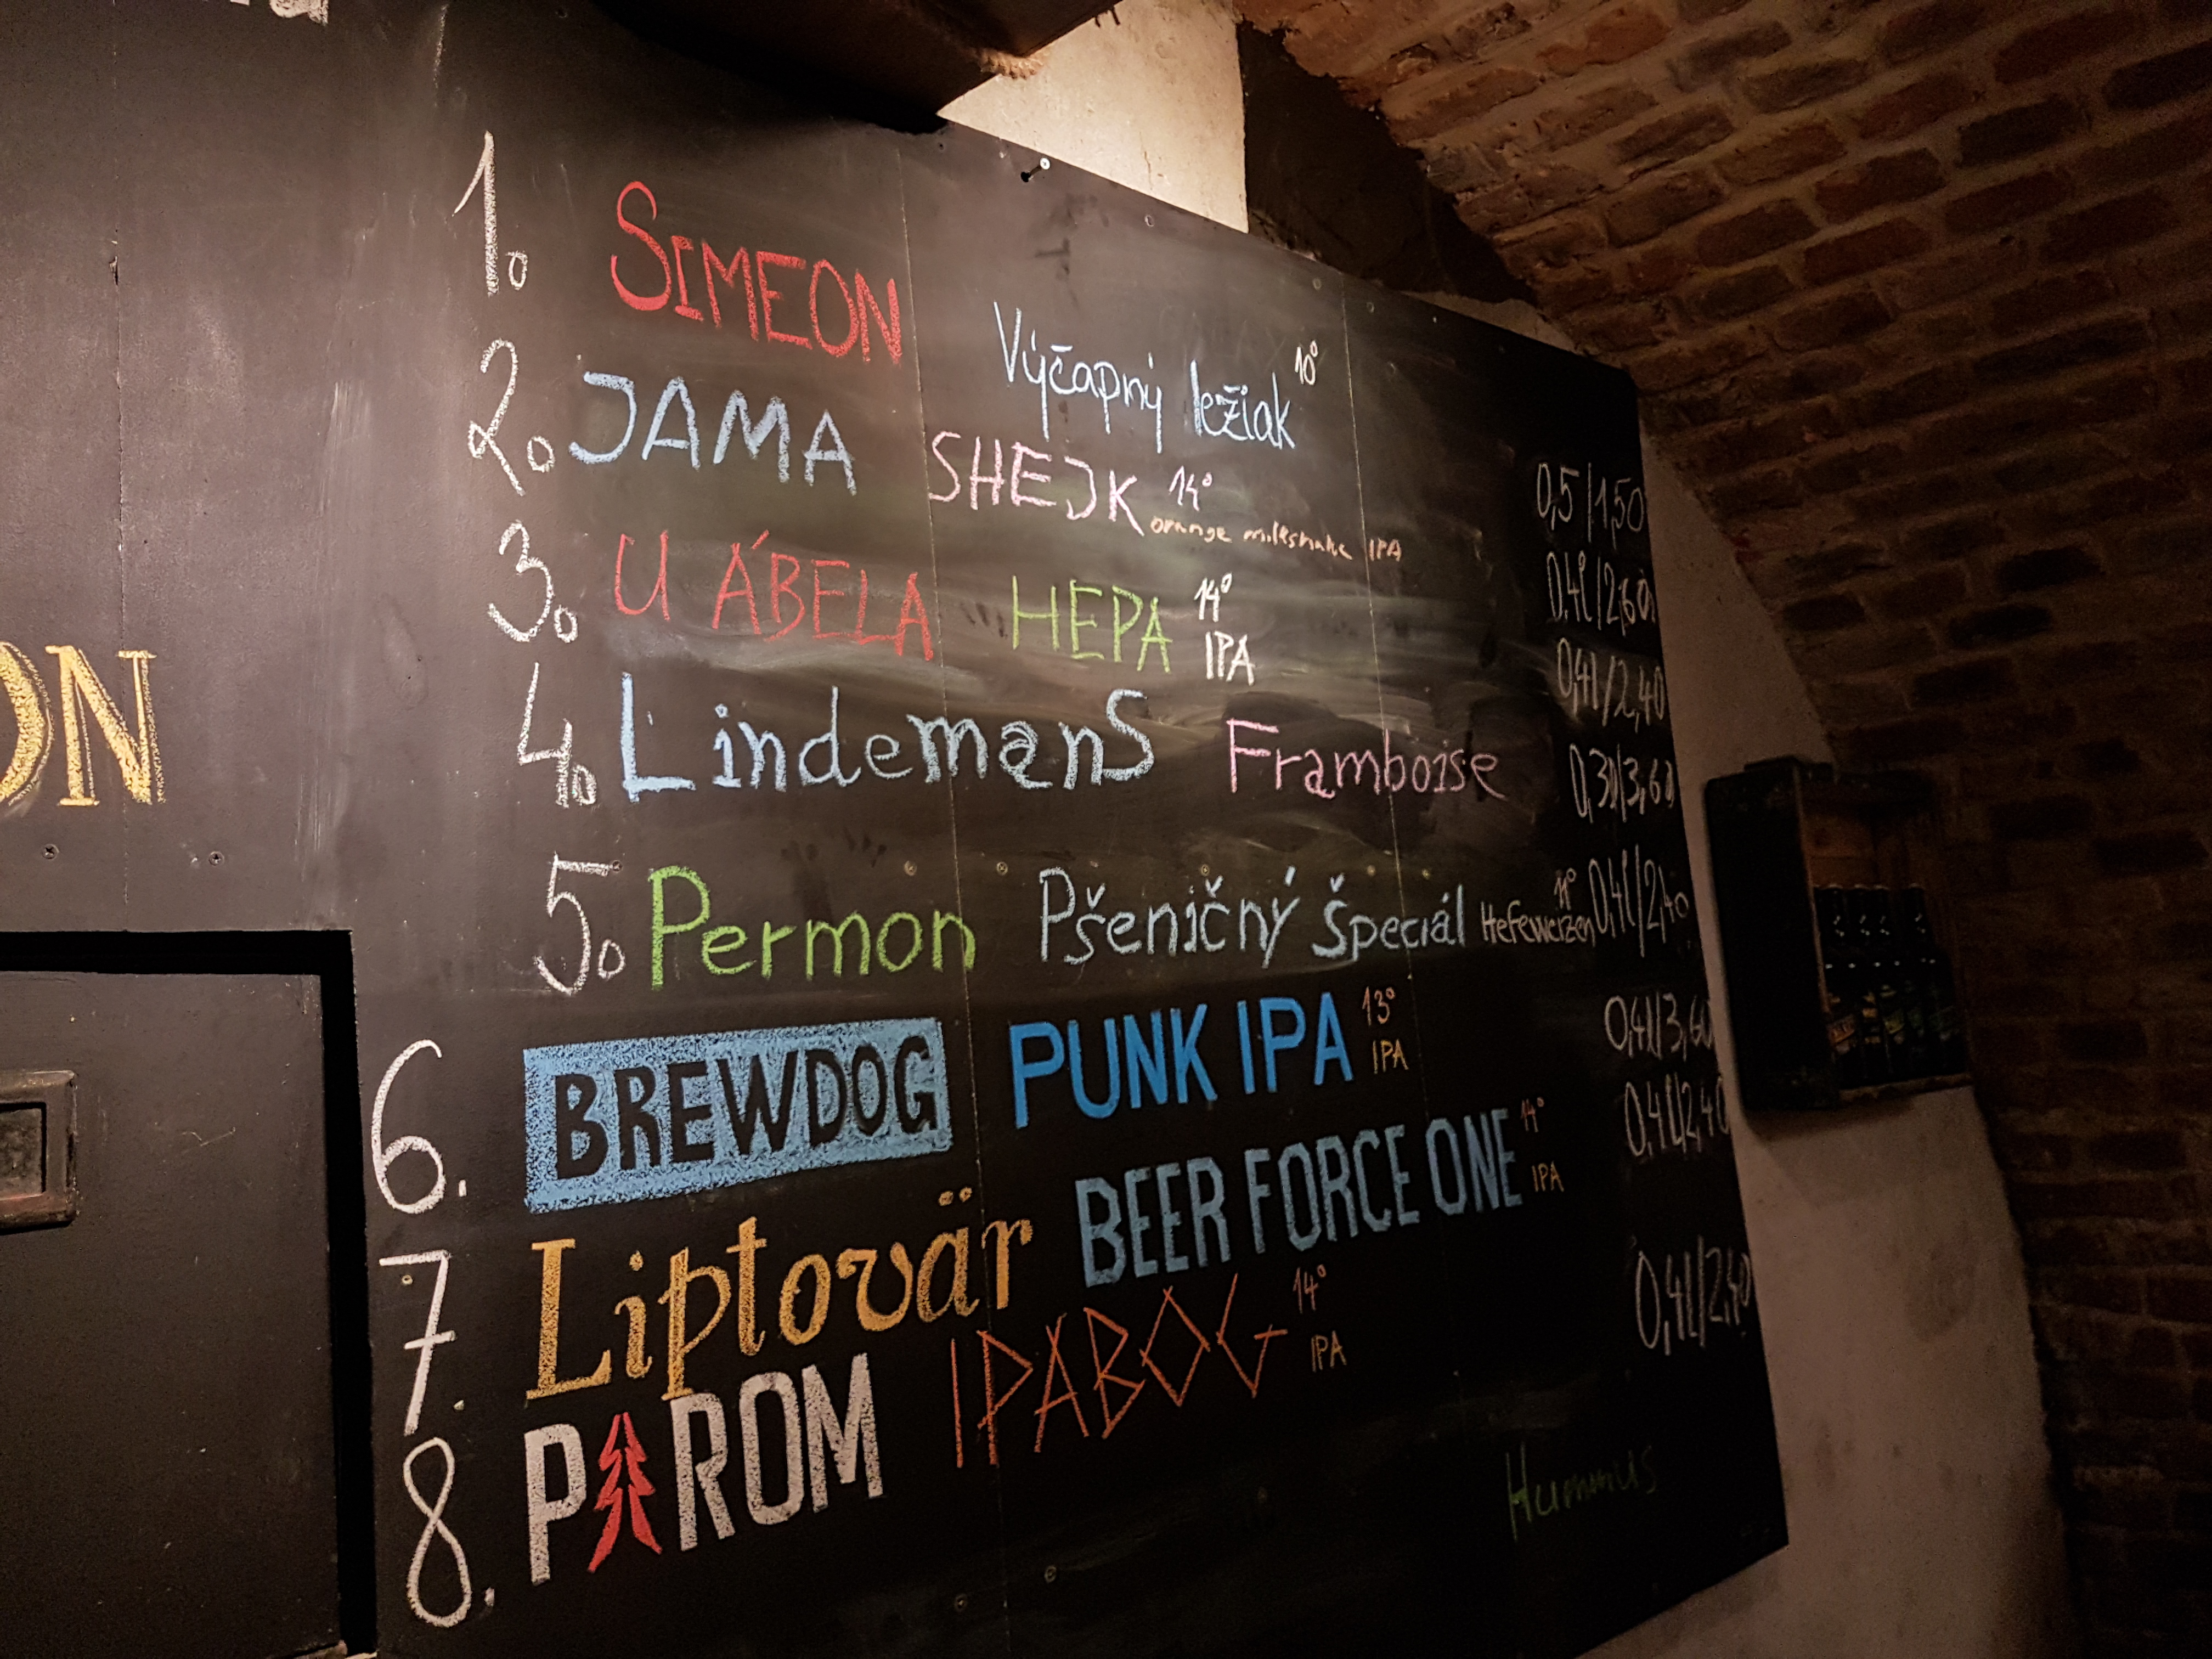 ON
1. SIMEON Výčapný ležiak 10° 0,5/1,50
2. JAMA SHEJK 14° orange milkshake IPA 0.4l/2,60
3. U ÁBELA HEPA 14° IPA 0,4l/2,40
4. Lindemans Framboise 0,3l/3,60
5. Permon Pšeničný Špeciál Hefeweizen 11° 0,4l/2,40
6. BREWDOG PUNK IPA 13° IPA 0,4l/3,60
7. Liptovär BEER FORCE ONE 14° IPA 0,4l/2,40
8. PAROM IPABOG 14° IPA 0,4l/2,40
Hummus